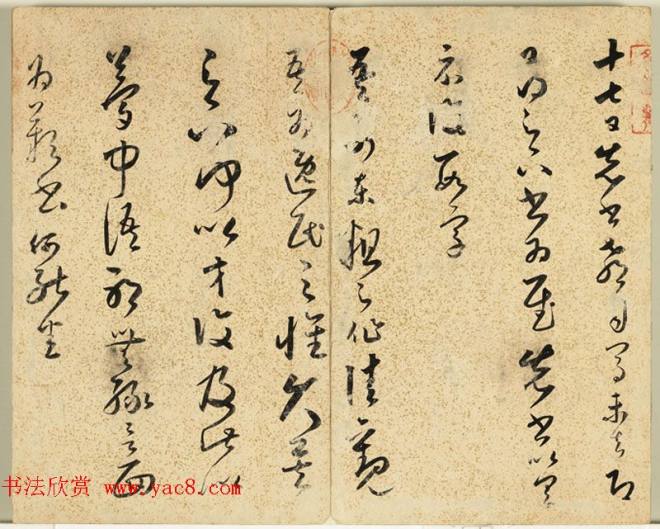 十七日先書郗司馬未去即
日得足下書為慰先書以具
示復數字
吾前東粗足作佳觀
吾為逸民之懷久矣
足下何以方復及此似
夢中語耶無緣言面
為歎書何能悉
书法欣赏 www.yac8.com